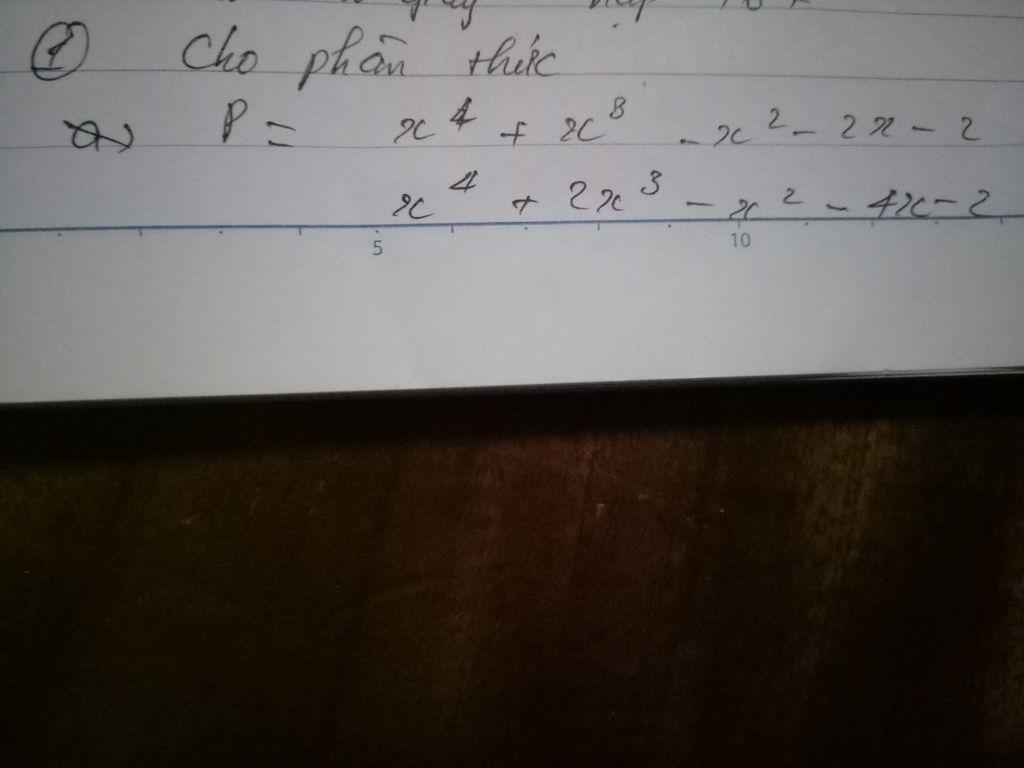 ① Cho phân thức
a) P = x⁴ + x⁸ - x² - 2x - 2
x⁴ + 2x³ - x² - 4x - 2
5 10